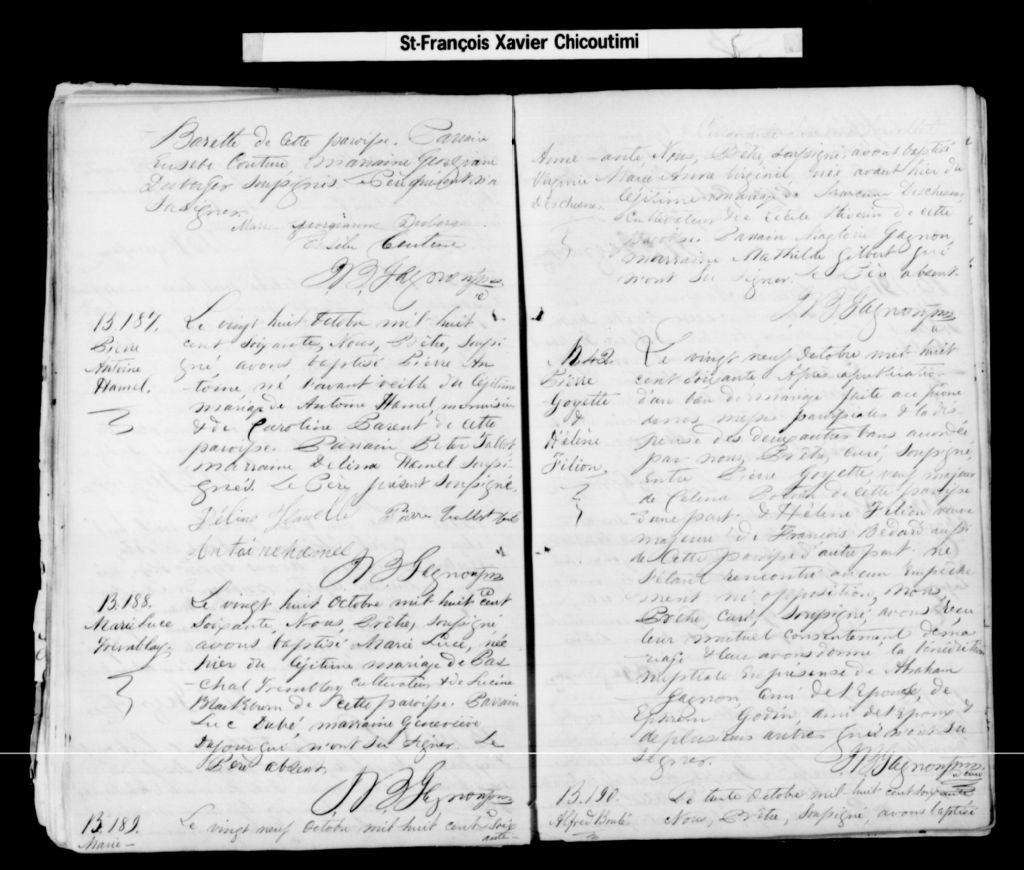 St-François Xavier Chicoutimi
Barette de cette paroisse. Parrain
Eusèbe Couture Marraine Georgiane
Duberger soussignés
Signer.
Marie Georgianne
Eusèbe Couture
N B Gagnon ptre
B. 187.
Pierre
Antoine
Hamel.
Le vingt huit Octobre mil huit
cent soixante, Nous, Prêtre, soussi
gné avons baptisé Pierre An
toine, né l'avant veille du légitime
mariage de Antoine Hamel, menuisier
& de Caroline Parent de cette
paroisse. Parrain Peter Talbot
marraine Delina Hamel soussi
gnés. Le Père présent soussigné.
Délina Hamelle Pierre Talbot
Antoine hamel
N B Gagnon ptre
B. 188.
Marie Luce
Tremblay.
Le vingt huit Octobre mil huit cent
soixante, Nous, Prêtre, soussigné
avons baptisé Marie Luce, née
hier du légitime mariage de Pas
chal Tremblay cultivateur & de Lucine
Blackburn de cette paroisse. Parrain
Luc Dubé, marraine Geneviève
n'ont su signer. Le
Père absent.
N B Gagnon ptre
B. 189.
Marie-
Le vingt neuf Octobre mil huit cent soix
ante-
Anne
Virginie
Deschenes.
-ante Nous, Prêtre, soussigné, avons baptisé
Marie Anna Virginie, née avant hier du
légitime mariage de Deschenes
cultivateur & de Cécile de cette
paroisse. Parrain Gagnon,
marraine Mathilde Gilbert qui
n'ont su signer. Le Père absent.
N B Gagnon ptre
M 42.
Pierre
Goyette
&
Hélène
Filion.
Le vingt neuf Octobre mil huit
cent soixante Après la publication
d'un ban de mariage faite au prône
de nos messes paroissiales & la dis
pense des deux autres bans accordée
par nous, Prêtre, curé, soussigné,
entre Pierre Goyette, veuf majeur
de Célina de cette paroisse
d'une part. & Hélène Filion veuve
majeure de François Bedard aussi
de cette paroisse d'autre part. Ne
s'étant rencontré aucun empêche
ment ni opposition, Nous,
Prêtre, curé, soussigné, avons reçu
leur mutuel consentement de ma
riage & leur avons donné la bénédiction
nuptiale en présence de Abraham
Gagnon, ami de l'Epouse, de
Ephrem Godin, ami de l'Epoux &
de plusieurs autres qui n'ont su
signer.
N B Gagnon ptre
curé
B. 190.
Alfred Boulé
Le trente Octobre mil huit cent soixante
Nous, Prêtre, soussigné, avons baptisé